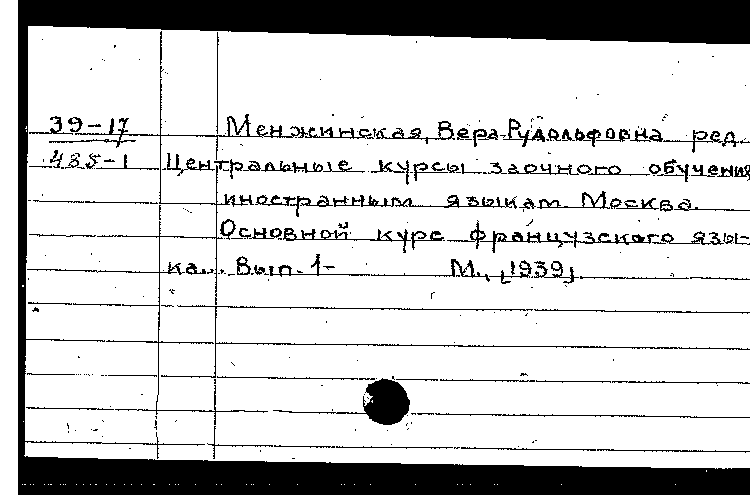 39-17 Менжинская, Вера Рудольфовна ред.
485-1 Центральные курсы заочного обучения
иностранным языкам. Москва.
Основной курс французского язы-
ка... Вып. 1- М., [1939].